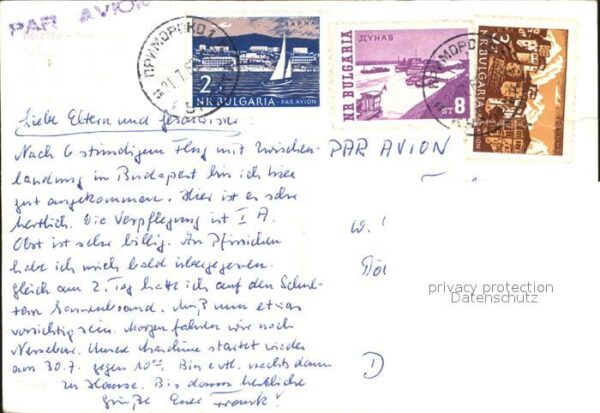 PAR AVION
ВАРНА
2
NR BULGARIA PAR AVION
ПРИМОРСКО 1
ДУНАВ
NR BULGARIA
ST 8
ПРИМОРСКО
3
Liebe Eltern und
Nach 6 stündigem Flug mit Zwischen-
landung in Budapest bin ich hier
gut angekommen. Hier ist es sehr
herrlich. Die Verpflegung ist I A.
Obst ist sehr billig. An Pfirsichen
habe ich mich bald übergegessen.
Gleich am 2. Tag hatte ich auf den Schul-
tern Sonnenbrand. Muß nun etwas
vorsichtig sein. Morgen fahren wir nach
Nessebar. Unsere Maschine startet wieder
am 30.7. gegen 10 Bin evtl. nachts dann
zu Hause. Bis dann herzliche
Grüße Euer Frank!
PAR AVION
W.
D
privacy protection
Datenschutz